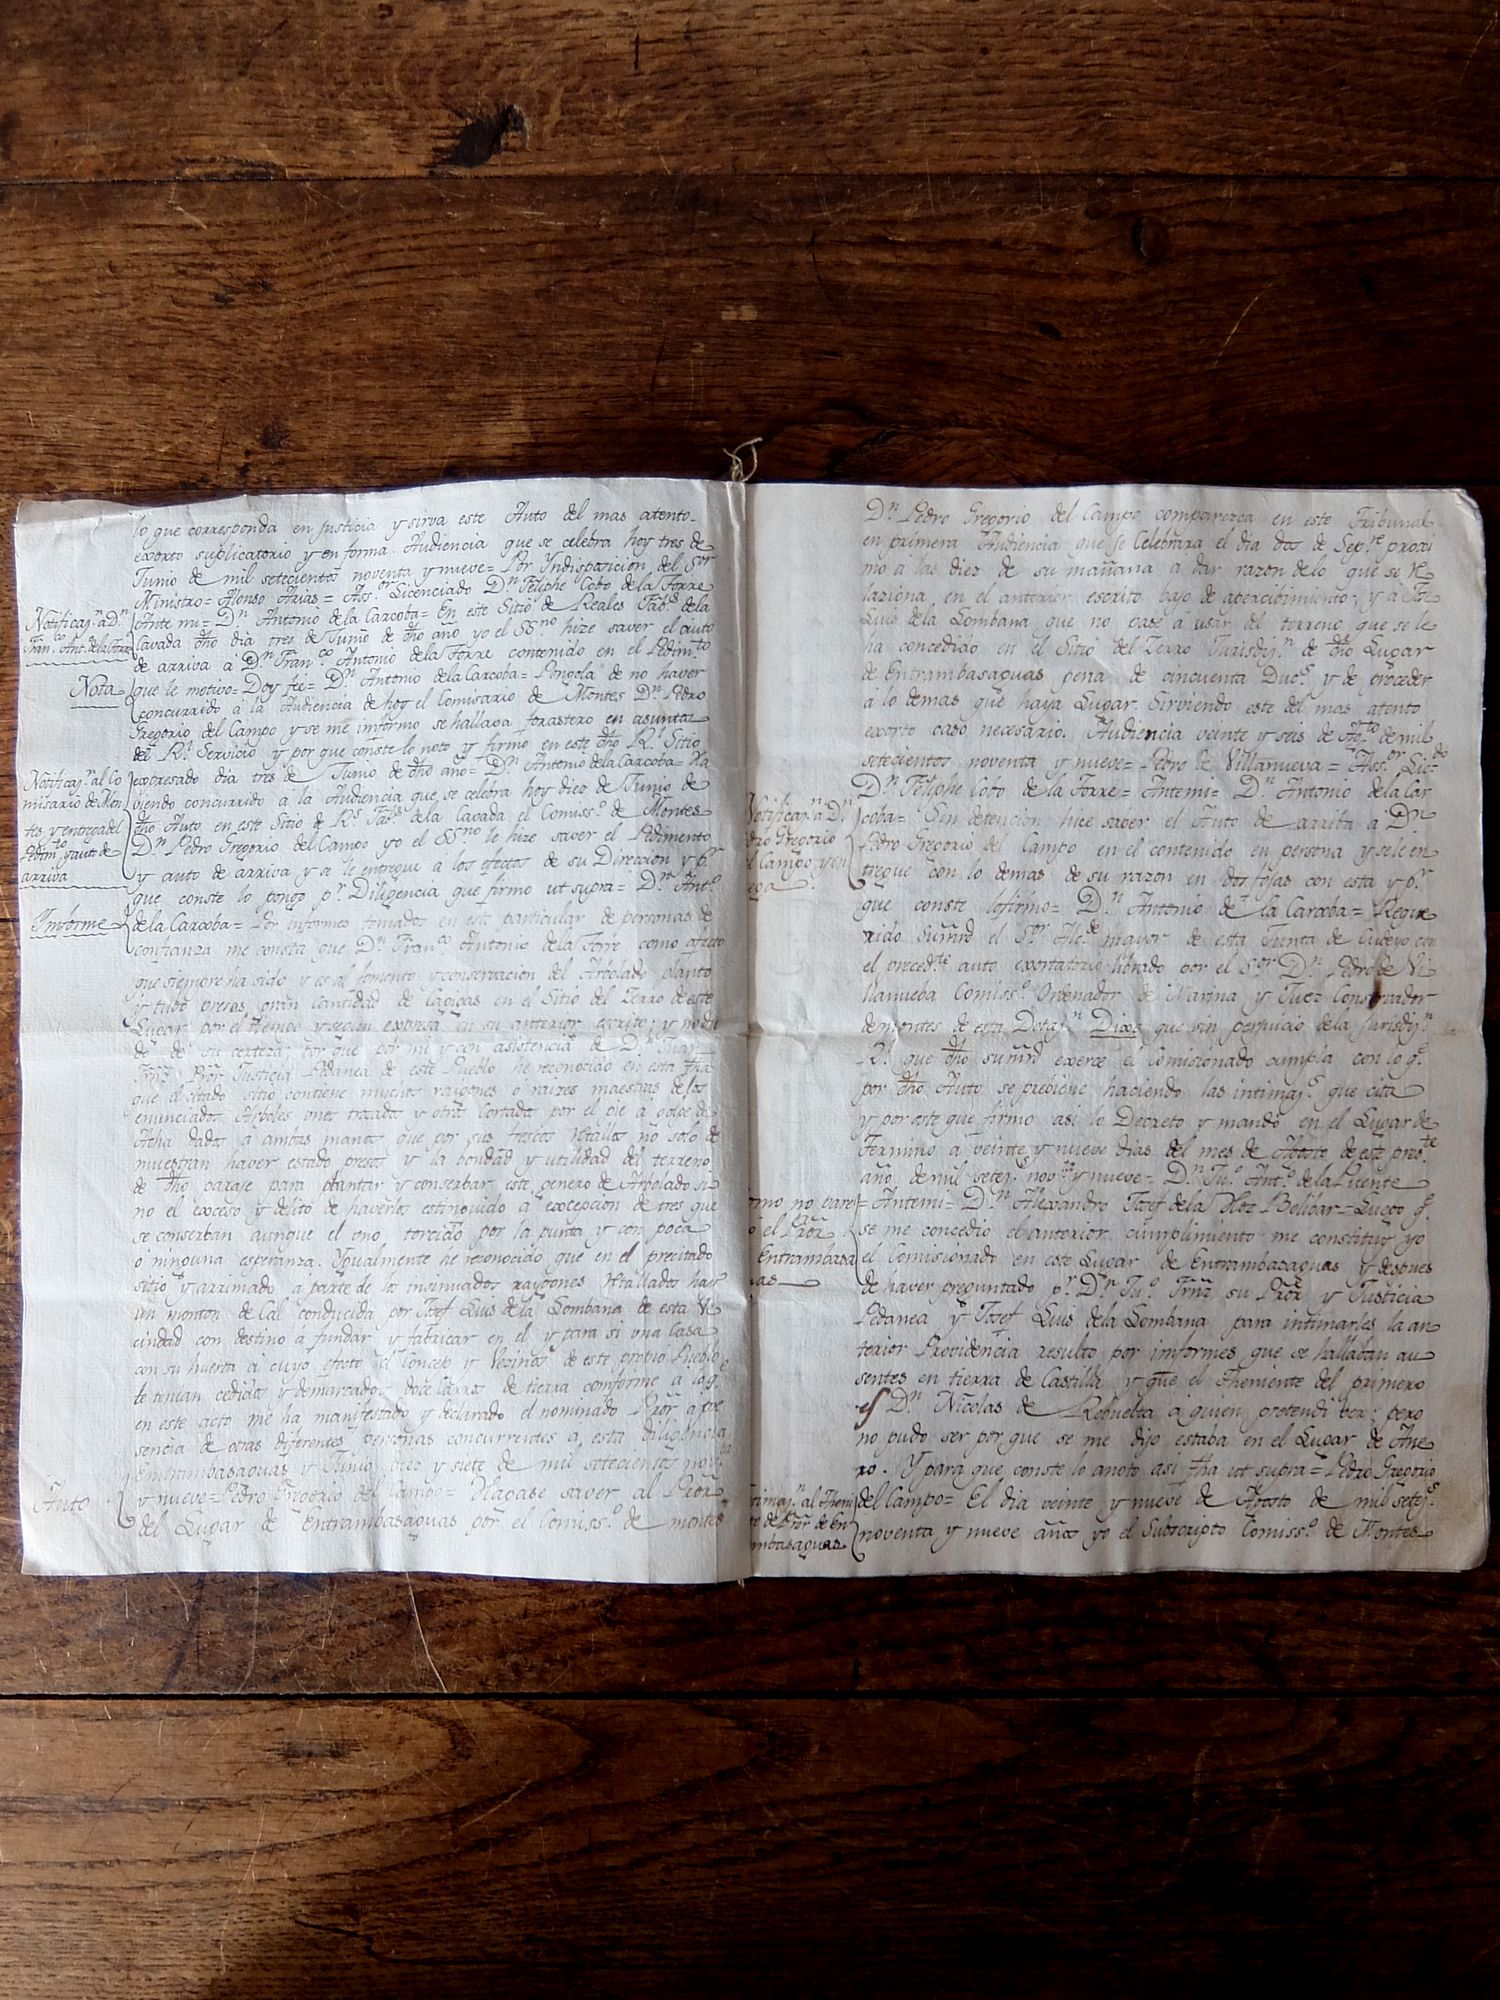 lo que corresponda en Justicia y sirva este Auto del mas atento
exorto suplicatorio y en forma. Audiencia que se celebra hoy tres de
Junio de mil setecientos noventa y nueve= Por Yndisposicion del S.or
Ministro= Alonso Arias= Ass.or Licenciado D.n Feliphe Cobo de la Torre
Notificaj.n a D.n
Fran.co Ant. de la Torre
Ante mi= D.n Antonio de la Carcoba= En este Sitio de Reales Fab.s de la
Cavada dho dia tres de Junio de dho año yo el SS.no hize saver el auto
de arriva à D.n Fran.co Antonio de la Torre contenido en el Pedim.to
Nota
que le motivo= Doy feè= D.n Antonio de la Carcoba= Pongola de no haver
concurrido à la Audiencia de hoy el Comisario de Montes D.n Pedro
Gregorio del Campo y se me informo se hallava forastero en asuntos
del R.l Servicio y por que conste lo noto y firmo en este dho R.l Sitio
Notificaj.n al Co
misario de Mon
tes, y entrega del
Pedim.to y auto de
arriva
expresado dia tres de Junio de dho año= D.n Antonio de la Carcoba= Ha
viendo concurrido à la Audiencia que se celebra hoy diez de Junio de
dho Auto en este Sitio de R.s Fab.s de la Cavada el Comiss.o de Montes
D.n Pedro Gregorio del Campo yo el SS.no le hize saver el Pedimento
y auto de arriva y se le entregue a los efectos de su Direccion y p.r
que conste lo pongo p.r Diligencia que firmo ut supra= D.n Ant.o
Ynforme
de la Carcoba= Por informes tomados en este particular de personas de
confianza me consta que D.n Fran.co Antonio de la Torre como afecto
que siempre ha sido y es al fomento y conservacion del Arbolado planto
y tubo presas gran cantidad de Cagigas en el Sitio del Zerro de este
Lugar por el tiempo y segun expresa en su anterior escrito; y no du
do de su certeza; por que por mi y con asistencia de D.n Juan
Frnz Pror Justicia Pedanea de este Pueblo he reconocido en esta fha
que el citado sitio contiene muchos raygones ò raizes maestras de los
enunciados Arboles unos trozados y otros Cortados por el pie a golpe de
Acha dados a ambas manos que por sus frescos retallos no solo de
muestran haver estado presos y la bondad y utilidad del terreno
de dho paraje para plantar y conserbar este genero de Arbolado si
no el exceso y delito de haverlos estinguido à excepcion de tres que
se conserban aunque el uno torcido por la punta y con poca
ò ninguna esperanza. Ygualmente he reconocido que en el precitado
sitio y arrimado a parte de los insinuados raygones retallados hay
un monton de Cal conducida por Josef Luis de la Lombana de esta Ve
cindad con destino a fundar y fabricar en el y para si una Casa
con su huerta à cuyo efecto el Concejo y Vecinos de este propio Pueblo
le tenian cedidos y demarcados doce Carros de tierra comforme à lo q.e
en este acto me ha manifestado y declarado el nominado Pror a pre
sencia de otras diferentes personas concurrentes à esta diligencia
Entrambasaguas y Junio diez y siete de mil setecientos nov.ta
Auto
y nueve= Pedro Gregorio del Campo= Hagase saver al Pror
del Lugar de Entrambasaguas por el Comiss.o de montes
D.n Pedro Gregorio del Campo comparezca en este Tribunal
en primera Audiencia que se Celebrara el dia dos de Sep.re proxi
mo a las diez de su mañana a dar razon de lo que se re
laziona en el anterior escrito bajo de apercibimiento; y a Jos.
Luis de la Lombana que no pase à usar del terreno que se le
ha concedido en el Sitio del Zerro Jurisdij.n de dho Lugar
de Entrambasaguas pena de cincuenta Duc.s y de proceder
à lo demas que haya Lugar. Sirviendo este del mas atento
exorto caso necesario. Audiencia veinte y seis de Ag.to de mil
setecientos noventa y nueve= Pedro de Villanueva= Ass.or Lic.do
D.n Feliphe Cobo de la Torre= Antemi= D.n Antonio de la Car
Notificaj.n a D.n
dro Gregorio
l Campo y en
ega
coba= Sin detencion hice saber el Auto de arriba à D.n
Pedro Gregorio del Campo en el contenido en persona y se le en
tregue con lo demas de su razon en dos fojas con esta y p.r
que conste lo firmo= D.n Antonio de la Carcoba= Reque
rido Sumrd el S.or Alc.de mayor de esta Junta de Cudeyo con
el preced.te auto exortatorio librado por el S.or D.n Pedro de Vi
llanueba Comiss.o Ordenador de Marina y Juez Conservador
de montes de esta Dotaj.n Dixo que sin perjuicio de la Jurisdij.n
R.l que dho sumrd exerce el Comisionado cumpla con lo q.e
por dho Auto se prebiene haciendo las intimaj.s que cita
y por este que firmo asi lo Decreto y mandò en el Lugar de
Termino à veinte y nueve dias del mes de Agosto de este pres.te
año de mil setez.s nov.ta y nueve= D.n Ju.o Ant.o de la Puente
rmo no parez
o el Pror
Entrambasa
uas
= Antemi= D.n Alexandro Josef de la Hoz Bolibar= Luego q.e
se me concedio el anterior cumplimiento me constituy yo
el Comisionado en este Lugar de Entrambasaguas y despues
de haver preguntado p.r D.n Ju.o Frnz su Pror y Justicia
Pedanea y Josef Luis de la Lombana para intimarles la an
terior Providencia resulto por informes que se hallaban au
sentes en tierra de Castilla y que el Theniente del primero
es D.n Nicolas de Rebuelta à quien pretendi ver; pero
no pudo ser por que se me dijo estaba en el Lugar de Ane
ro. Y para que conste lo anoto asi fha ut supra= Pedro Gregorio
timaj.n al Theni
te de Pror de En
mbasaguas
del Campo= El dia veinte y nueve de Agosto de mil setej.s
noventa y nueve años yo el Subscripto Comiss.o de Montes